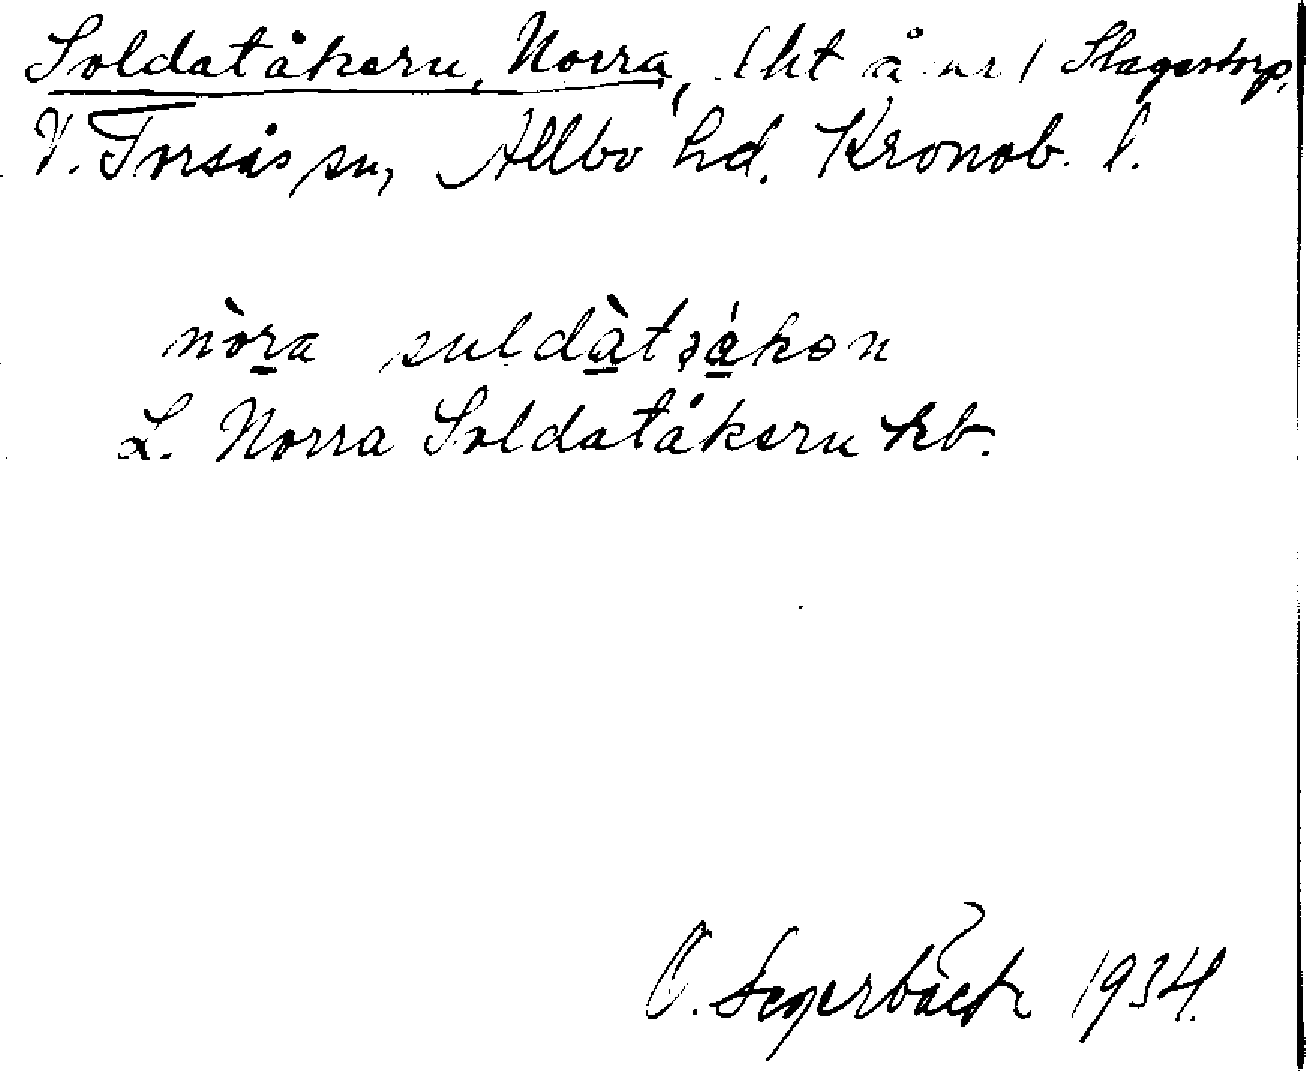 Soldatåkern, Norra, Skagastorp,
V. Torsås sn, Allbo hd. Kronob. l.
nòra suldàtsákən
L. Norra Soldatåkern kb.
O. Segerbäck 1934.